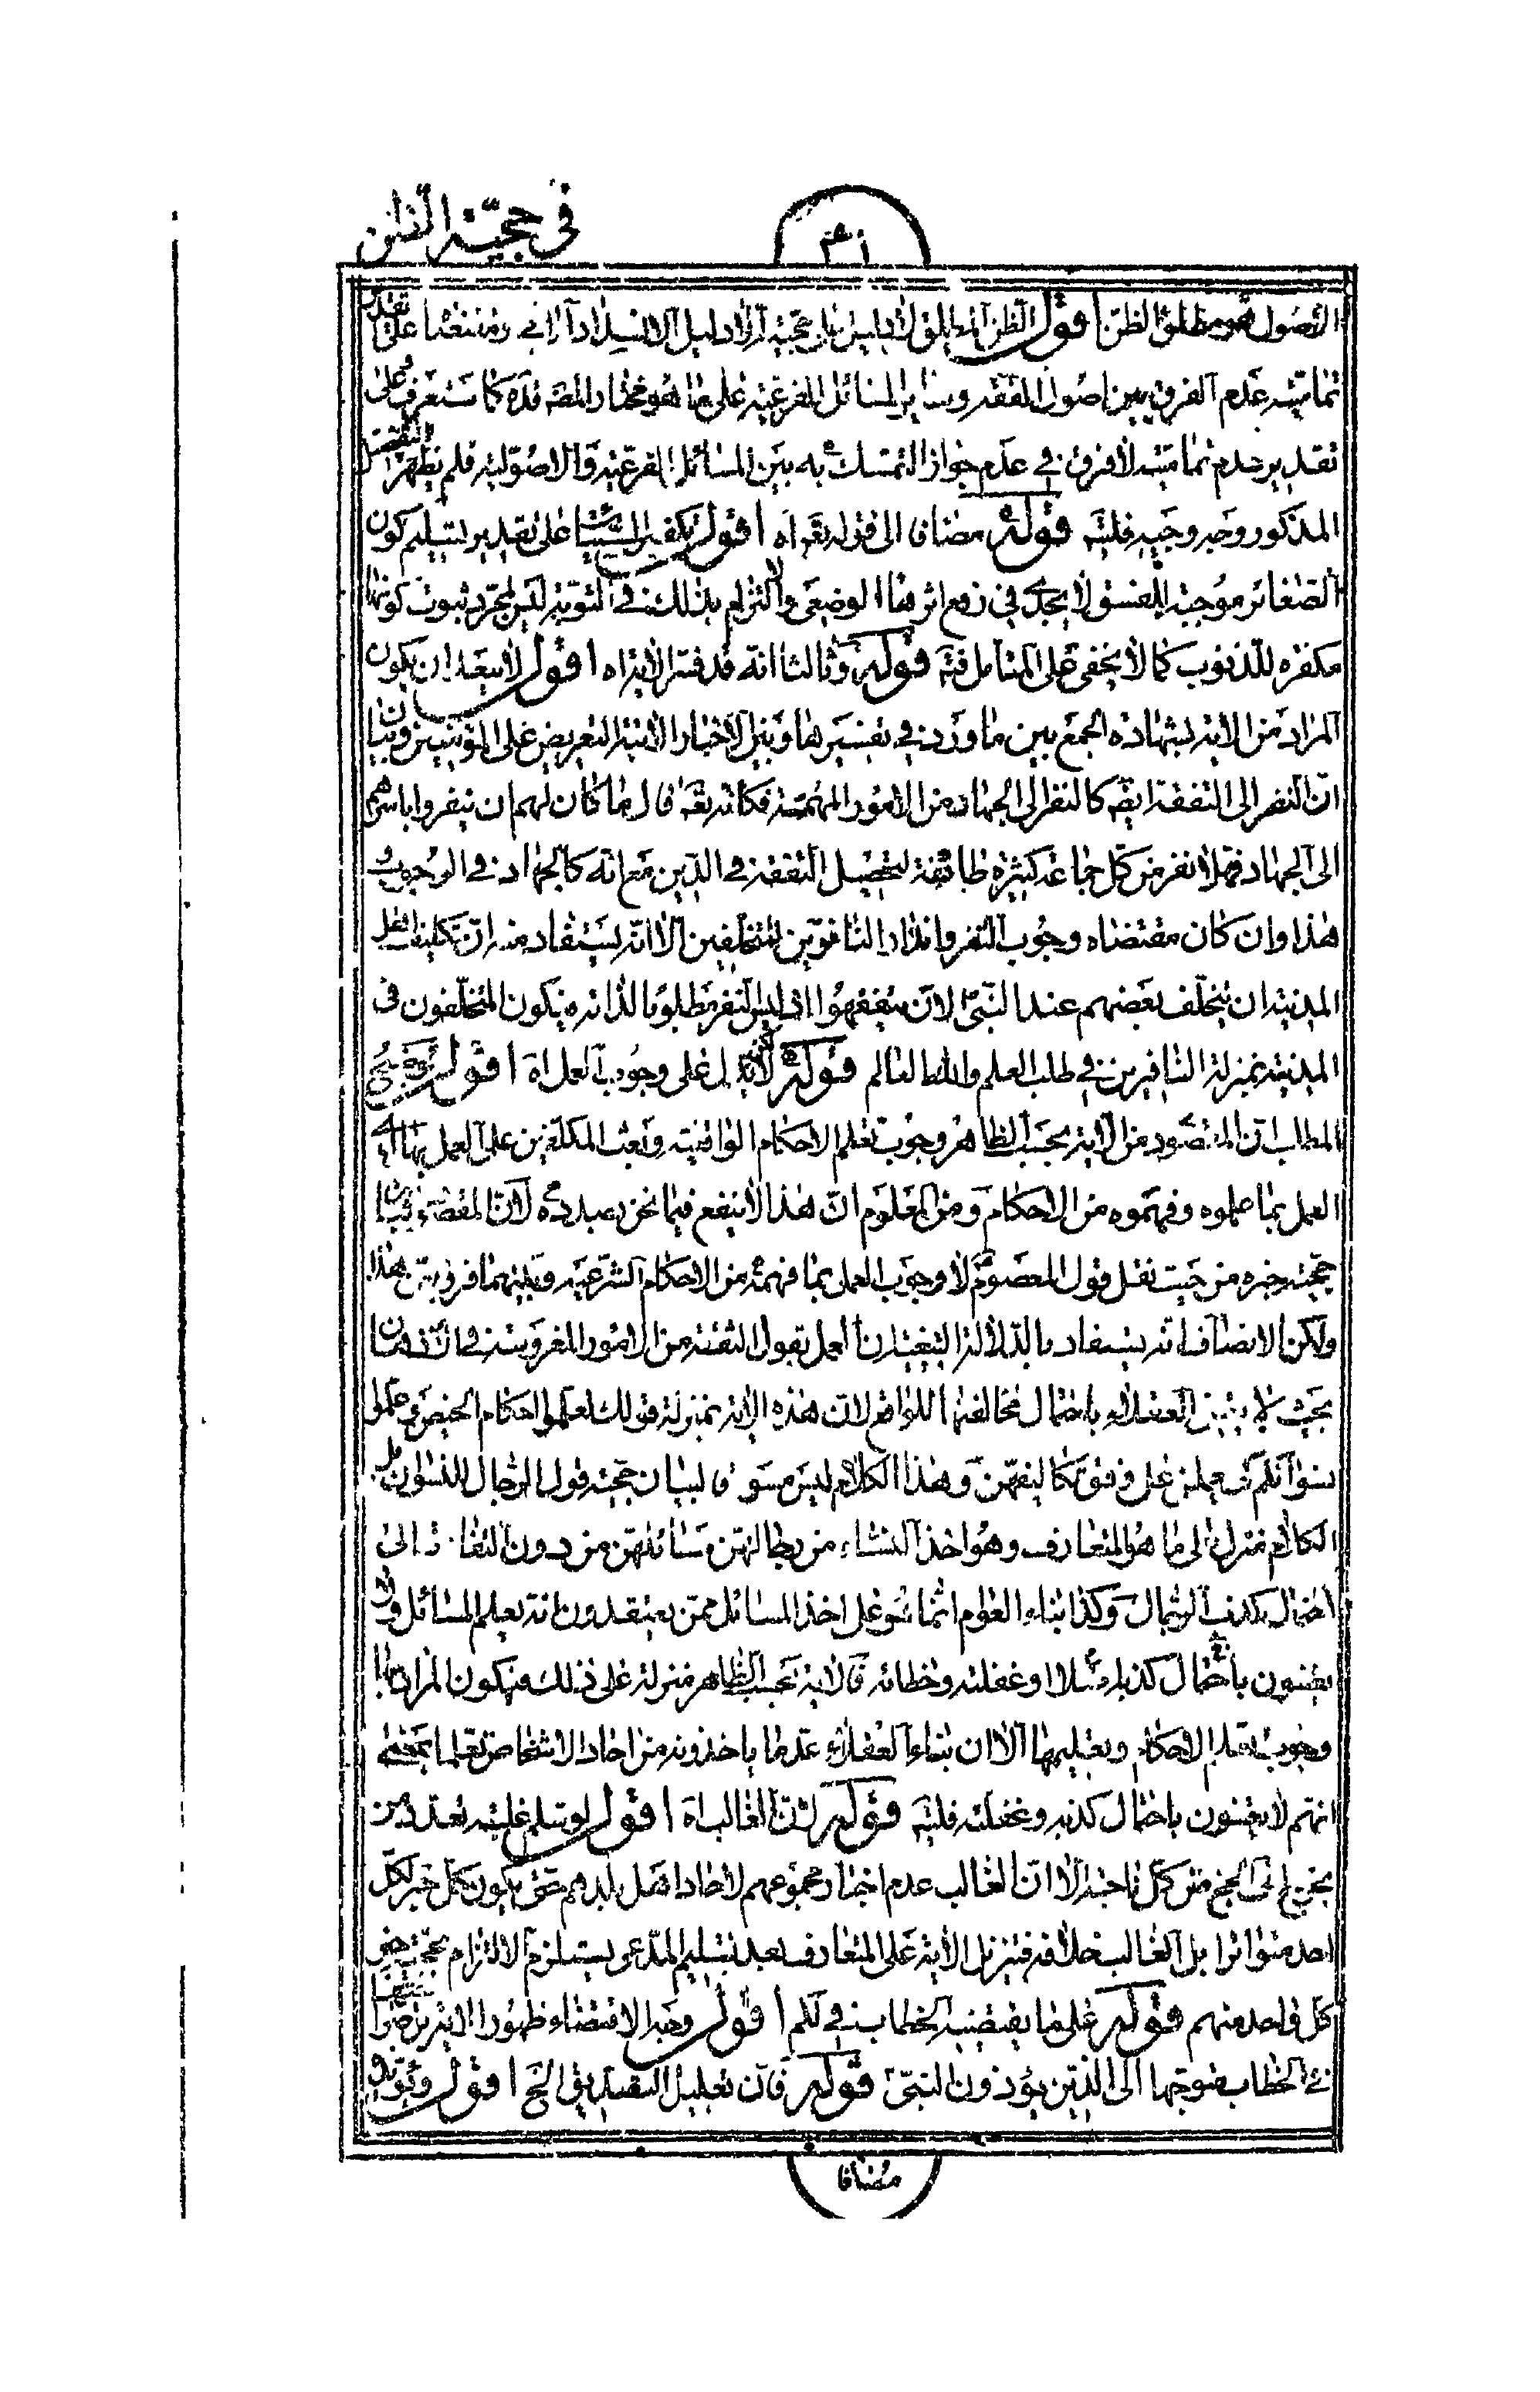 في حجيّة الظن
الاصول هو مطلق الظنّ اقول الظن المطلق لا دليل على حجيته الا دليل الانسداد الآتي ومقتضاه على تقدير
تماميته عدم الفرق بين اصول الفقه وساير المسائل الفرعيّة على ما هو مختار المصّ قدّه كما ستعرف وعلى
تقدير عدم تماميته لا فرق في عدم جواز التمسك به بين المسائل الفرعيّة والاصوليّة فلم يظهر للتفصيل
المذكور وجه وجيه فليتَه قوله مضافا الى قوله تعَه اه اقول تكفير السيّئات على تقدير تسليم كون
الصّغائر موجبة للفسق لا يجدى في رفع اثرها الوضعى والالتزام بذلك في التوبة ليس لمجرّد ثبوت كونها
مكفرة للذنوب كما لا يخفى على المتامل فتَه قوله وثالثا انّه قد فسّر الآية اه اقول لا يبعد ان يكون
المراد من الاية بشهادة الجمع بين ما ورد في تفسيرها وبين الاخبار الاتية التعريض على المؤمنين وبيان
انّ النفر الى التفقة ايضَه كالنفر الى الجهاد من الامور المهمّة فكانّه تعَه قال ما كان لهم ان ينفروا باسرهم
الى الجهاد فهلّا نفر من كلّ جماعة كثيرة طائفة لتحصيل التفقه في الدّين مع انّه كالجهاد في الوجوب و
هذا وان كان مقتضاه وجوب النفر وانذار النافرين للمتخلّفين الّا انّه يستفاد منه انّ تكليف اهل
المدينة ان يتخلّف بعضهم عند النّبىّ لان يتفقهوا اذ ليس النفر مطلوبا لذاته فيكون المتخلّفون في
المدينة بمنزلة النافرين في طلب العلم والله العالم قوله لا يدل على وجوب العمل اه اقول توضيح
المطلب انّ المقصود من الآية بحسب الظاهر وجوب تعلم الاحكام الواقعيّة وبعث المكلّفين على العمل بها اى
العمل بما علموه وفهموه من الاحكام ومن المعلوم انّ هذا لا ينفع فيما نحن بصدده لانّ المقصَود بيان
حجيّة خبره من حيث نقل قول المعصوم لا وجوب العمل بما فهمه من الاحكام الشّرعيّة وبينهما فرق بيّن هذا
ولكن الانصاف انّه يستفاد بالدّلالة التبعيّة ان العمل بقول الثقة من الامور المغروسة في اذهاننا
بحيث لا يعتنى العقلاء باحتمال مخالفتها للواقع لانّ هذه الاية بمنزلة قولك تعلّموا احكام الحيض وعلّموا
نسوانكم كى يعملن على وفق تكاليفهنّ وهذا الكلام ليس مسوقا لبيان حجّية قول الرّجال للنسوان بل
الكلام منزل على ما هو المتعارف وهو اخذ النساء من رجالهنّ مسائلهنّ من دون التفات الى
احتمال كذب الرّجال وكذا بناء العوام انّما هو على اخذ المسائل ممّن يعتقدون انّه يعلم المسائل ولا
يعتنون باحتمال كذبه مثلا او غفلته وخطائه فالاية بحسب الظاهر منزلة على ذلك فيكون المراد بها
وجوب تعلم الاحكام وتعليمها الّا ان بناء العقلاء عدّ ما ياخذونه من احاد الاشخاص تعلّما بمعنى
انهم لا يعتنون باحتمال كذبه وغفلته فليتَه قوله لانّ الغالب اه اقول لو سلم غلبة تعدد من
يخرج الى الحج من كلّ ناحية الّا انّ الغالب عدم اخبار مجموعهم لاحاد اهل بلدهم حتى يكون كل خبر لكلّ
احد متواترا بل الغالب خلافه فتنزيل الآية على المتعارف بعد تسليم المدّعى يستلزم الالتزام بحجّية خبر
كلّ واحد منهم قوله على ما يقتضيه الخطاب في لكم اقول وجه الاقتضاء ظهور الآية بمقتضى
الخطاب متوجّها الى الذين يؤذون النبىّ قوله فانّ تعليل التصديق الخ اقول ويؤيّده
مضافا